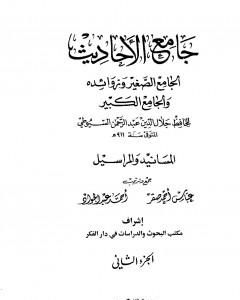 جامع الأحاديث
الجامع الصغير وزوائده
والجامع الكبير
للحافظ جلال الدين عبد الرحمن السيوطي
المتوفى سنة ٩١١ هـ
المسانيد والمراسيل
جمع وترتيب
عباس أحمد صقر أحمد عبد الجواد
إشراف
مكتب البحوث والدراسات في دار الفكر
الجزء الثاني